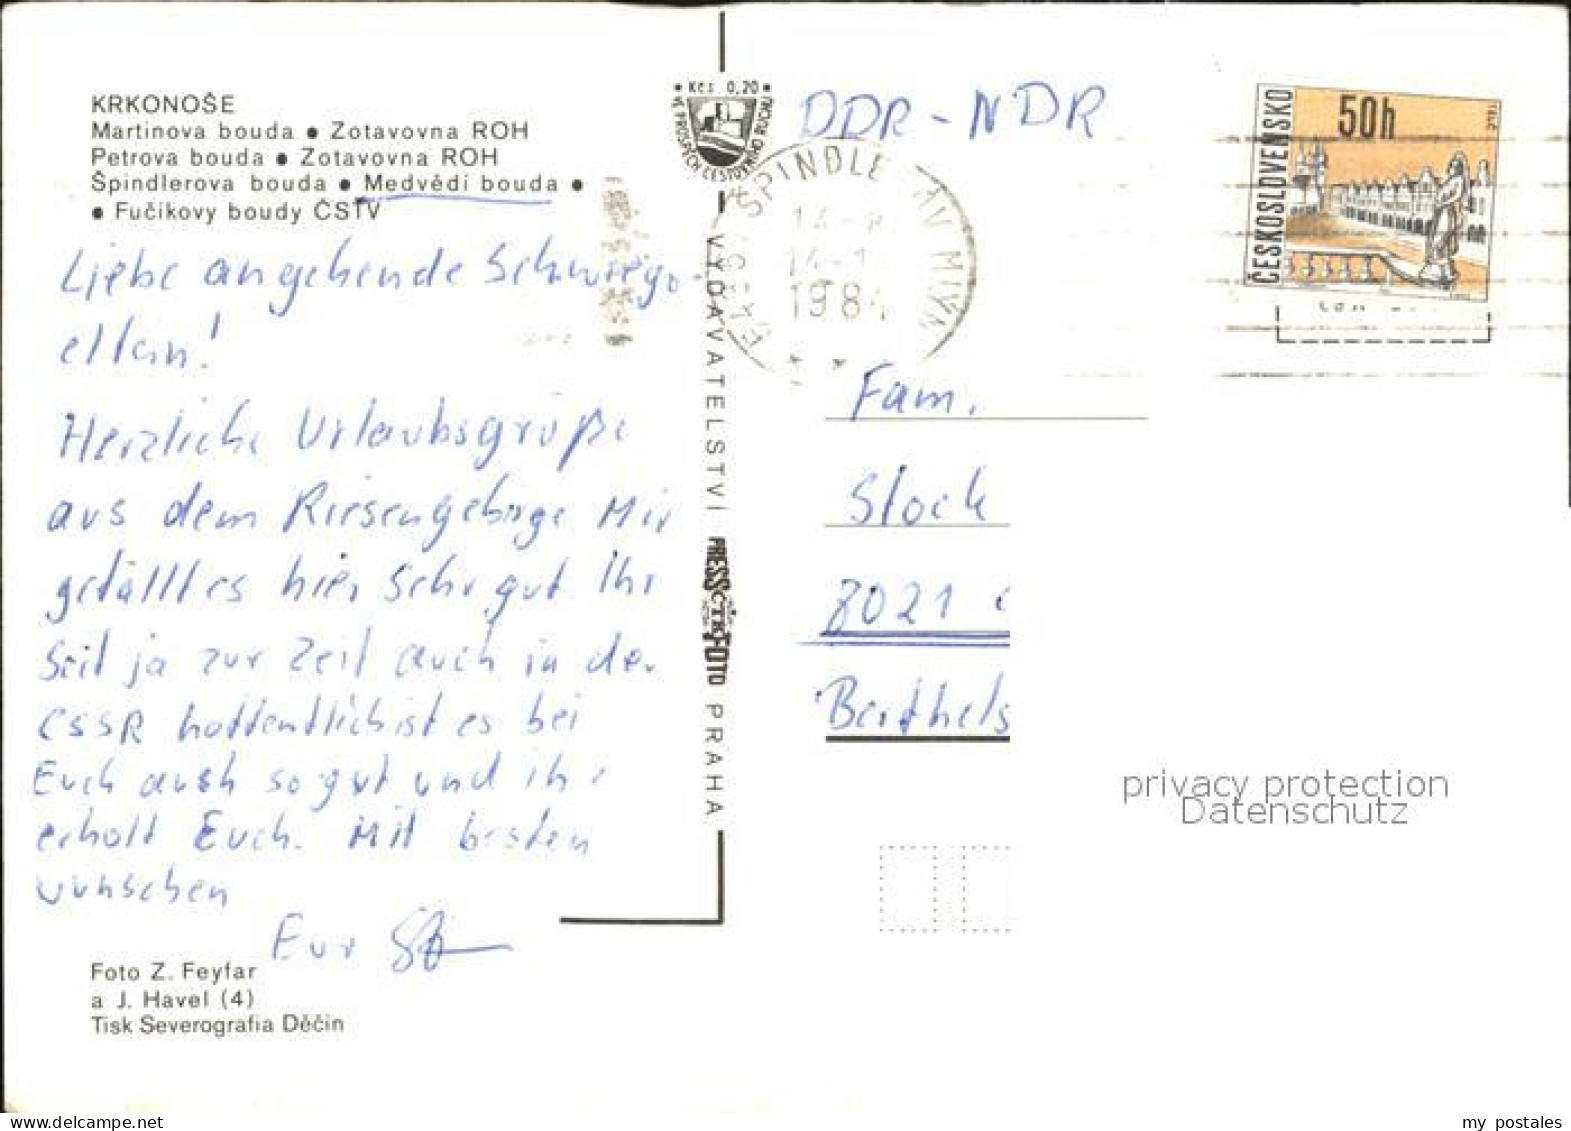 KRKONOŠE
Martinova bouda • Zotavovna ROH
Petrova bouda • Zotavovna ROH
Špindlerova bouda • Medvědí bouda •
• Fučíkovy boudy ČSTV
Liebe angehende Schwieger-
eltern!
Herzliche Urlaubsgrüße
aus dem Riesengebirge. Mir
gefällt es hier sehr gut. Ihr
seit ja zur Zeit auch in der
CSSR hoffentlich ist es bei
Euch auch so gut und ihr
erholt Euch. Mit besten
wünschen
Eur
Foto Z. Feyfar
a J. Havel (4)
Tisk Severografia Děčín
Kčs 0,20
VE PROSPĚCH CESTOVNÍHO RUCHU
VYDAVATELSTVÍ PRESSFOTO PRAHA
ČTK
DDR - NDR
ŠPINDLE AV MLÝN
1984
ČESKOSLOVENSKO
50h
TELČ
Fam.
Stock
8021
Berthels
privacy protection
Datenschutz
my postales